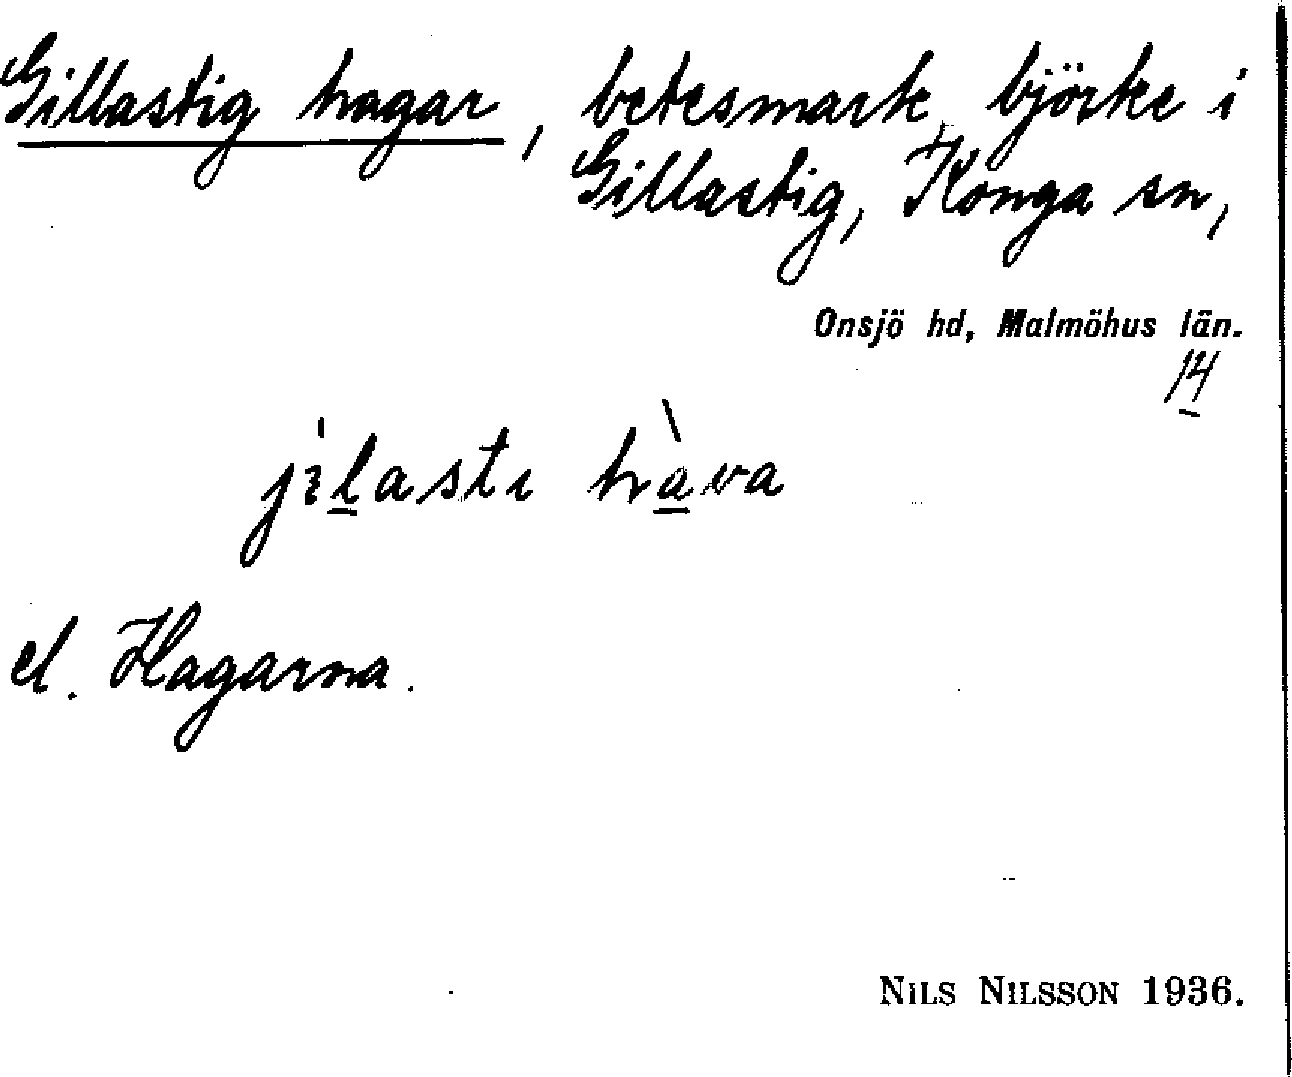 Gillastig hagar, betesmark, björke i
Gillastig, Konga sn,
Onsjö hd, Malmöhus län.
14
jìlastı hàva
el. Hagarna.
NILS NILSSON 1936.